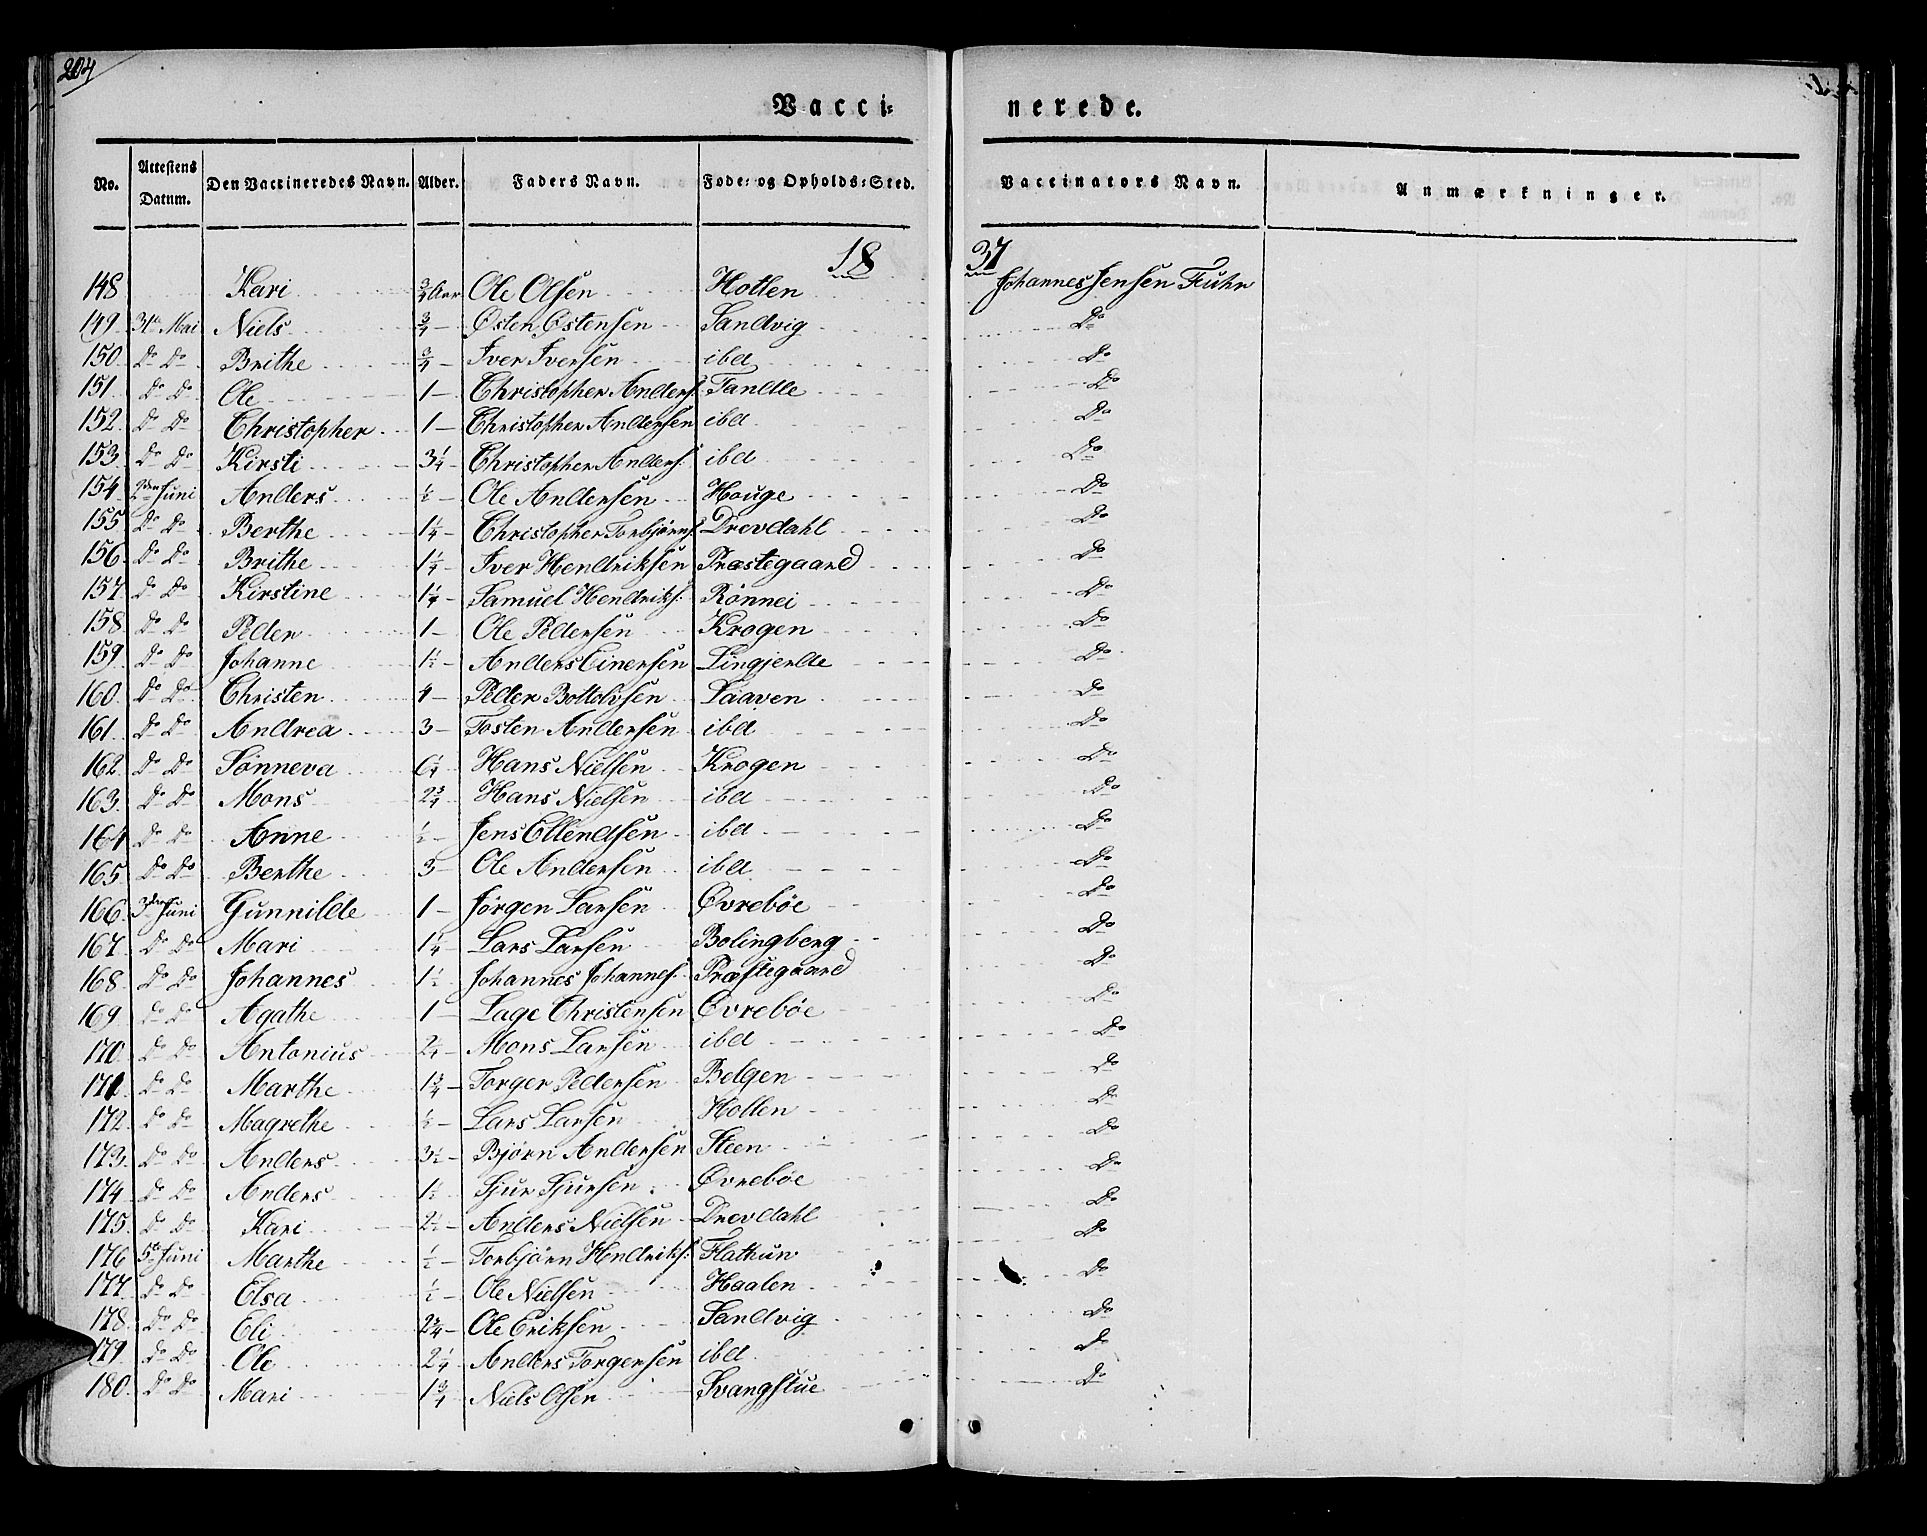 204
Vacci- nerede.
No. Attestens Datum. Den Vaccineredes Navn. Alder. Faders Navn. Føde- og Opholds-Sted. Vaccinators Navn. Anmærkninger.
18 37
148 Kari ¾ Aar Ole Olsen Hollen Johannes Jensen Fuhr
149 31te Mai Niels ¾ – Østen Østensen Sandvig Do
150 Do Do Brithe ¾ – Iver Iversen ibd Do
151 Do Do Ole 1 – Christopher Anders: Tandle Do
152 Do Do Christopher 1 – Christopher Andersen ibd Do
153 Do Do Kirsti 3¼ – Christopher Anders: ibd Do
154 2den Juni Anders ½ – Ole Andersen Houge Do
155 Do Do Berthe 1¼ – Christopher Torbjørns: Drevdahl Do
156 Do Do Brithe 1¼ – Iver Hendriksen Præstegaard Do
157 Do Do Kirstine 1¼ – Samuel Hendriks: Rønnei Do
158 Do Do Peder 1 – Ole Pedersen Krogen Do
159 Do Do Johanne 1½ – Anders Einersen Lingjerde Do
160 Do Do Christen 4 – Peder Bottolvsen Laaven Do
161 Do Do Andrea 3 – Tosten Andersen ibd Do
162 Do Do Sønneva 6¼ – Hans Nielsen Krogen Do
163 Do Do Mons 2¾ – Hans Nielsen ibd Do
164 Do Do Anne ½ – Jens Ellendsen ibd Do
165 Do Do Berthe 3 – Ole Andersen ibd Do
166 3die Juni Gunnilde 1 – Jørgen Larsen Øvrebøe Do
167 Do Do Mari 1¼ – Lars Larsen Bolingberg Do
168 Do Do Johannes 1½ – Johannes Johannes: Præstegaard Do
169 Do Do Agathe 1 – Lage Christensen Øvrebøe Do
170 Do Do Antonius 2¼ – Mons Larsen ibd Do
171 Do Do Marthe 1¾ – Torger Pedersen Belgen Do
172 Do Do Magrethe ½ – Lars Larsen Hollen Do
173 Do Do Anders 3½ – Bjørn Andersen Steen Do
174 Do Do Anders 1½ – Sjur Sjursen Øvrebøe Do
175 Do Do Kari 2½ – Anders Nielsen Drevdahl Do
176 5te Juni Marthe ½ – Torbjørn Hendriks: Flathun Do
177 Do Do Elsa ½ – Ole Nielsen Haalen Do
178 Do Do Eli 2¾ – Ole Eriksen Sandvig Do
179 Do Do Ole 2¼ – Anders Torgersen ibd Do
180 Do Do Mari 1¾ Niels Olsen Svangstue Do